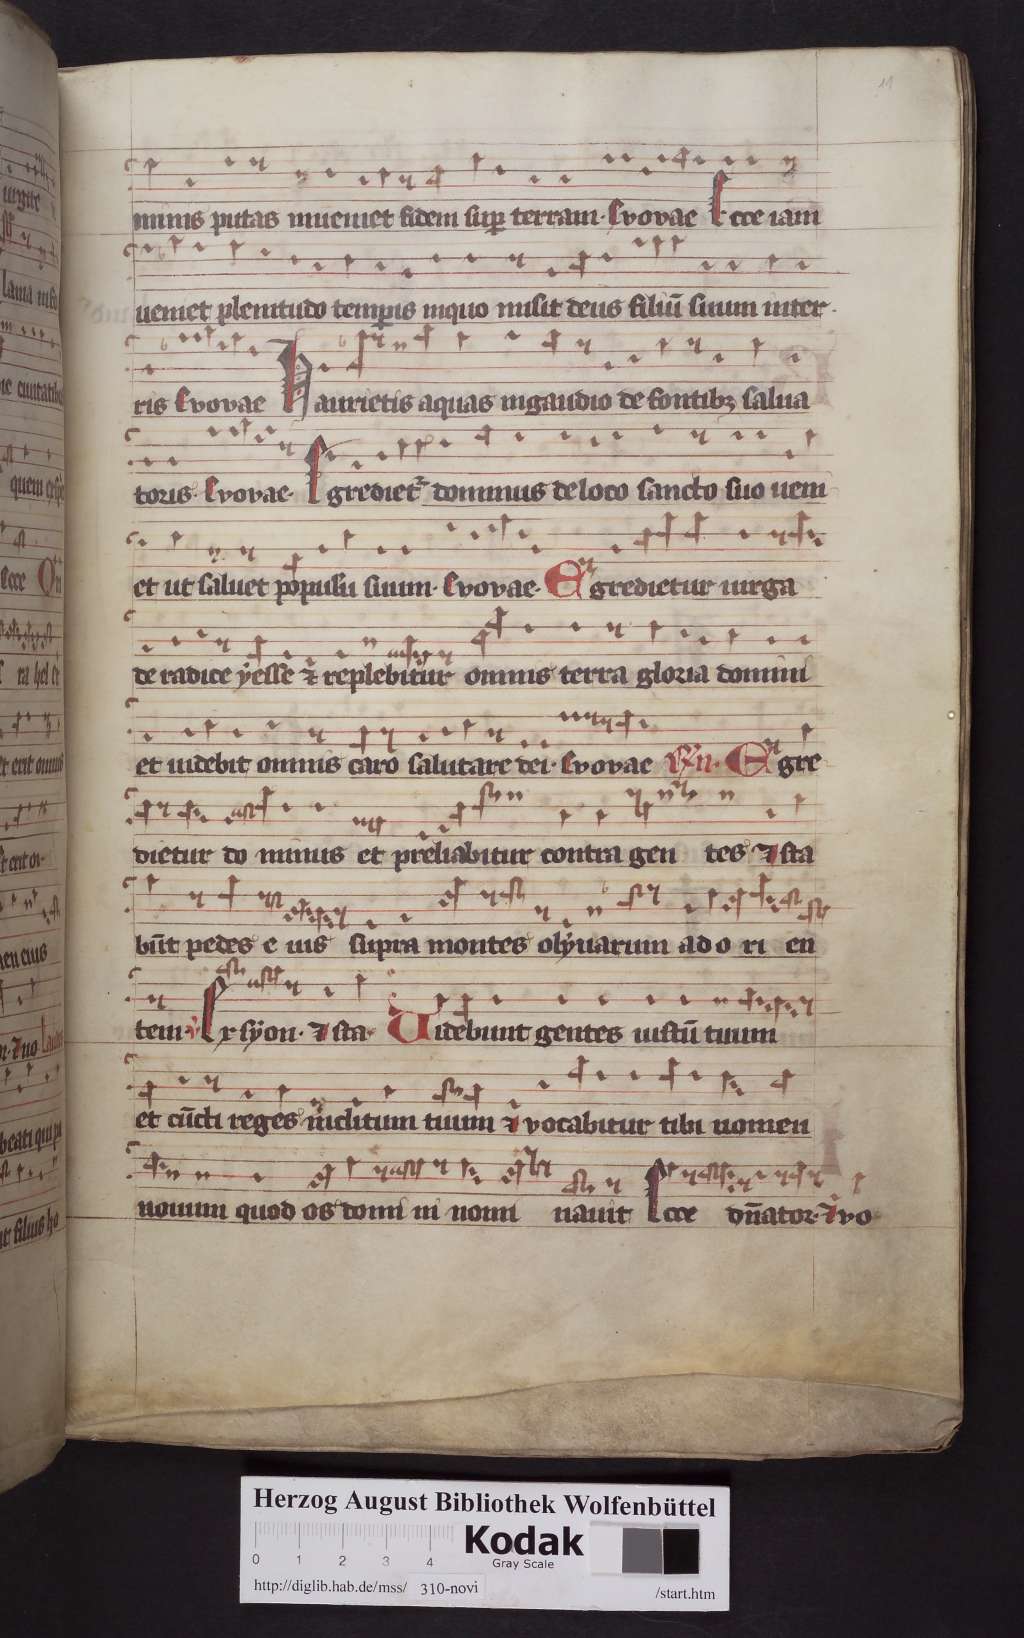 11
minis putas inueniet fidem sup terram · Euovae Ecce iam
ueniet plenitudo temporis inquo misit deus filiū suum inter
ris Euovae Haurietis aquas ingaudio de fontibꝫ salua
toris · Euovae · Egrediet᷑ dominus deloco sancto suo ueni
et ut saluet populū suum · Euovae · Egredietur uirga
de radice yesse ⁊ replebitur omnis terra gloria domini
et uidebit omnis caro salutare dei · Euovae Egre
dietur do minus et preliabitur contra gen tes ⁊ sta
būt pedes e ius supra montes olyuarum ad o ri en
tem · Ex syon · ⁊ sta · Uidebunt gentes iustū tuum
et cūcti reges inclitum tuum ⁊ vocabitur tibi nomen
nouum quod os domi ni nomi nauit Ecce dn̄ator · ⁊ vo
Herzog August Bibliothek Wolfenbüttel
0 1 2 3 4
Kodak
Gray Scale
http://diglib.hab.de/mss/ 310-novi /start.htm